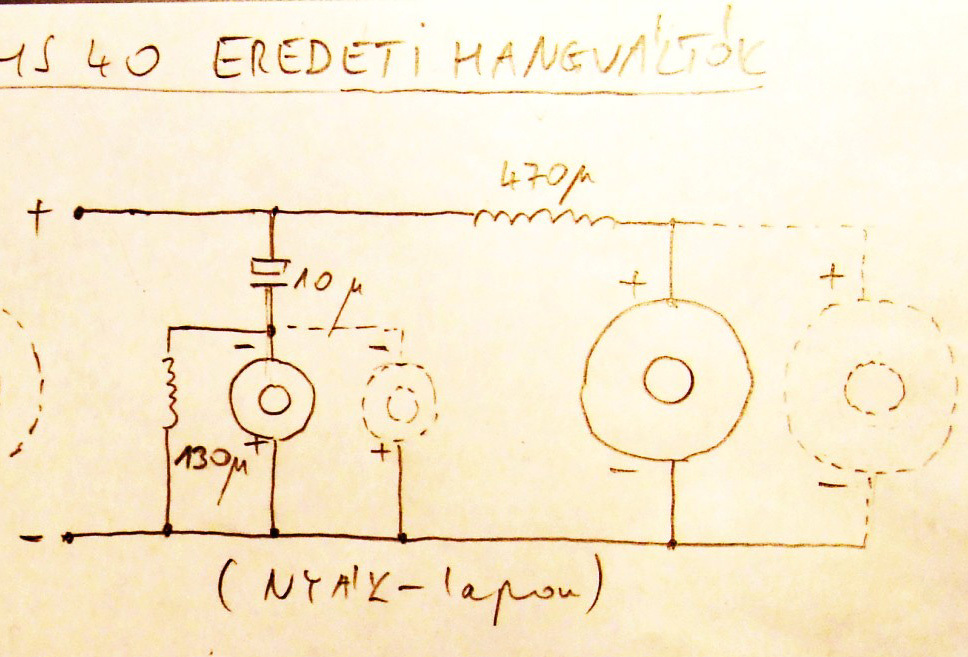 HS 40 EREDETI HANGVÁLTÓK
470µ
+
+
+
10 µ
-
-
130µ
+
+
-
-
-
(NYÁK-lapon)